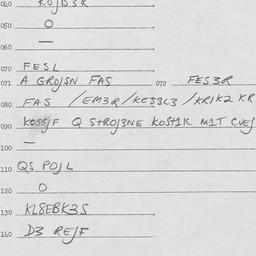 040 KOJD3R
050 O
060 —
070 FESL
071 A GROJSN FAS 072 FES3R
080 FAS /EM3R/KES3L3/KR1K2 KR
090 KOSSJF Q STROJ3NE KOST1K M1T CVEJ
100 —
110 QS POJL
120 O
130 KL8EBK3S
140 D3 REJF